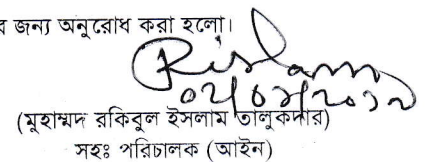 জন্য অনুরোধ করা হলো।
(মুহাম্মদ রকিবুল ইসলাম তালুকদার)
সহঃ পরিচালক (আইন)